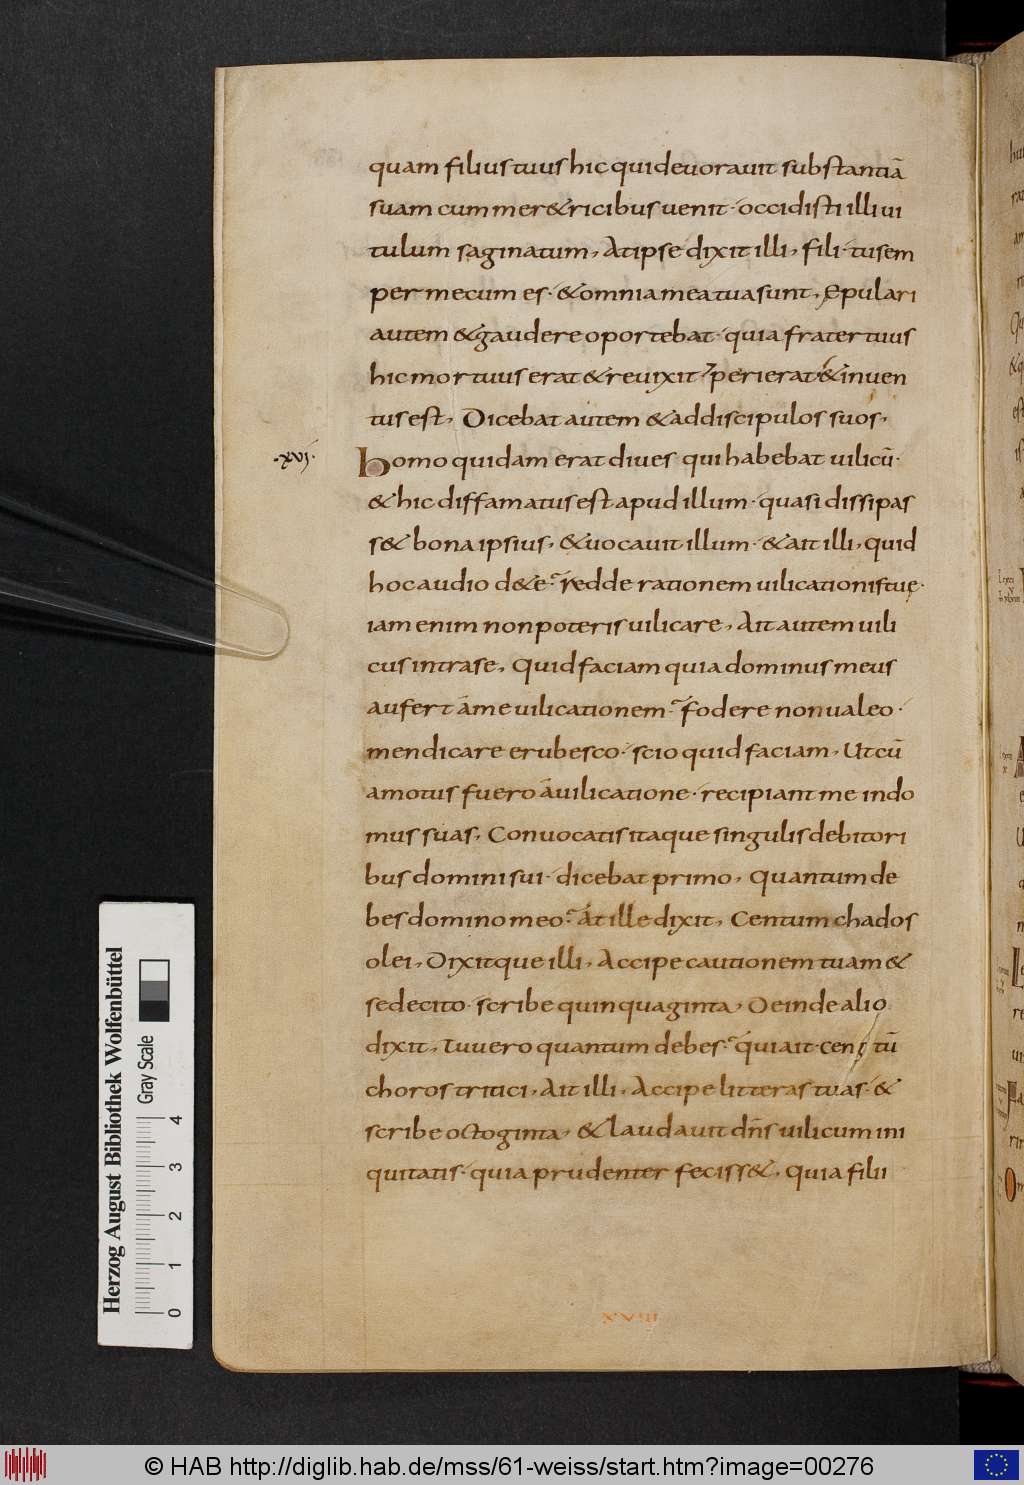 quam filius tuus hic qui devoravit substantiā
suam cum mer&ricibus uenit · occidisti illi ui
tulum saginatum, At ipse dixit illi, fili · tu sem
per mecum es · & omnia mea tua sunt, Ępulari
autem & gaudere oportebat · quia frater tuus
hic mortuus erat & reuixit · perierat & inuen
tus est, Dicebat autem & ad discipulos suos,
·xvj· Homo quidam erat diues qui habebat uilicū ·
& hic diffamatus est apud illum · quasi dissipas
s& bona ipsius, & uocauit illum · & ait illi, quid
hoc audio de te? redde rationem uilicationis tuę ·
iam enim non poteris uilicare, Ait autem uili
cus intra se, Quid faciam quia dominus meus
aufert a me uilicationem? fodere non ualeo ·
mendicare erubesco · scio quid faciam, Ut cū
amotus fuero a uilicatione · recipiant me in do
mus suas, Conuocatis itaque singulis debitori
bus domini sui · dicebat primo, Quantum de
bes domino meo? at ille dixit, Centum chados
olei, Dixitque illi, Accipe cautionem tuam &
sede cito · scribe quinquaginta, Deinde alio
dixit, Tu uero quantum debes? qui ait · centū
choros tritici, Ait illi, Accipe litteras tuas · &
scribe octoginta, & laudauit dn̄s uilicum ini
quitatis · quia prudenter feciss&, Quia filii
XVIII
Herzog August Bibliothek Wolfenbüttel
Gray Scale
0 1 2 3 4
© HAB http://diglib.hab.de/mss/61-weiss/start.htm?image=00276